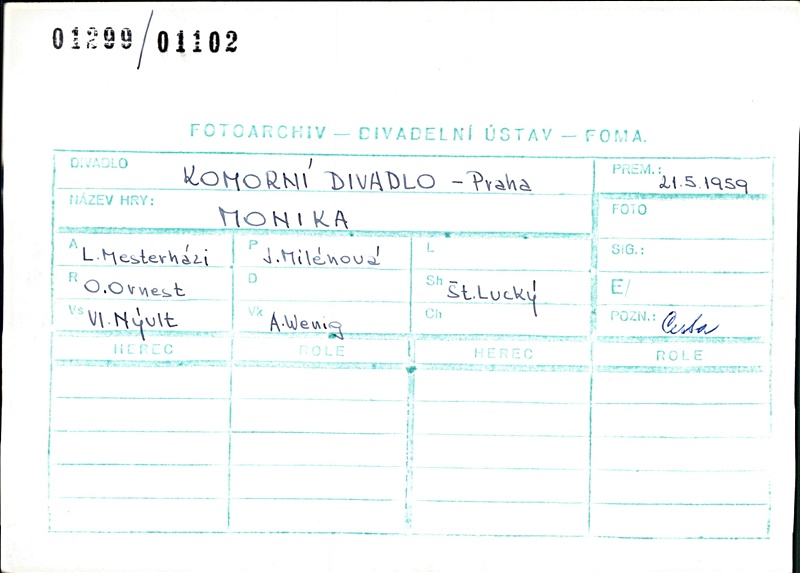 01299/01102
FOTOARCHIV — DIVADELNÍ ÚSTAV — FOMA.
DIVADLO KOMORNÍ DIVADLO - Praha
PREM.: 21.5.1959
NÁZEV HRY: MONIKA
FOTO
A L. Mesterházi P J. Milénová L
SIG.:
R O. Ornest D Sh Št. Lucký
E/
Vs Vl. Nývlt Vk A. Wenig Ch
POZN.:
HEREC ROLE HEREC ROLE